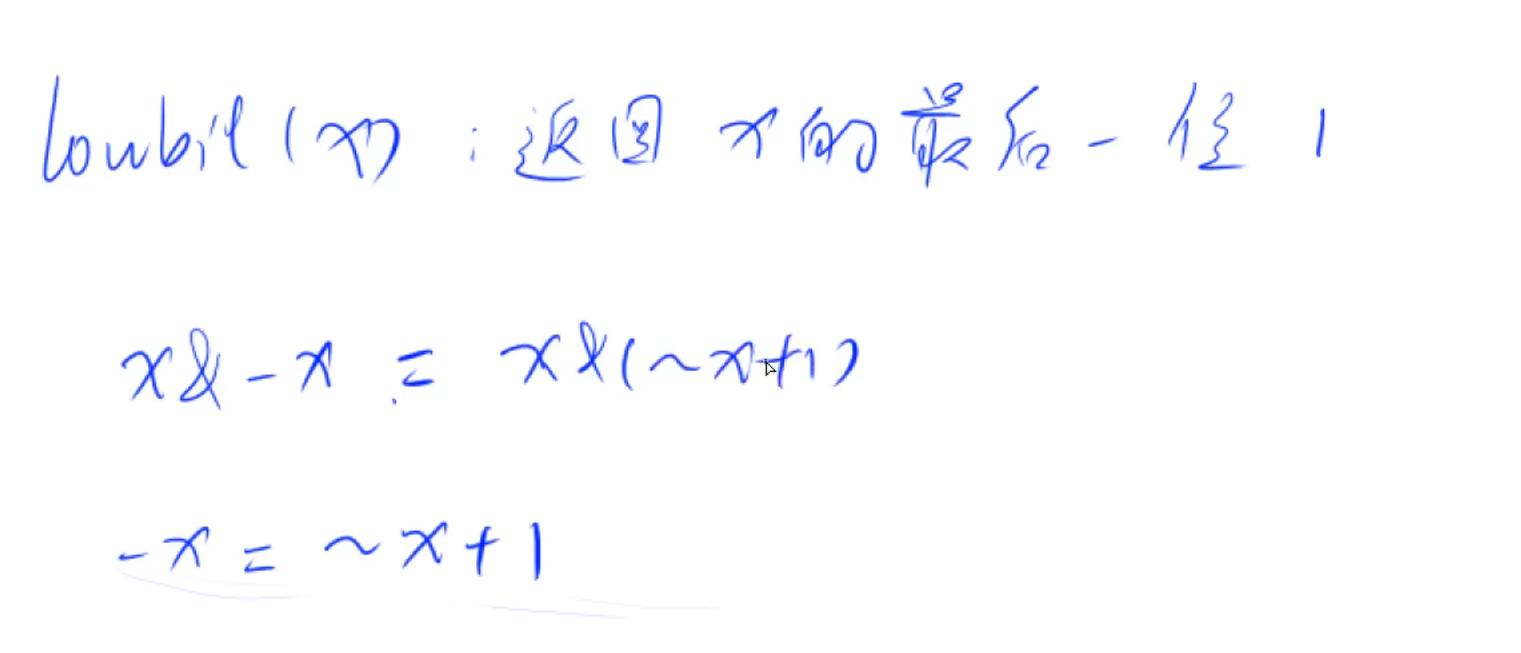 lowbit(x) : 返回 x 的最后一位 1
x & -x = x & (~x+1)
-x = ~x+1